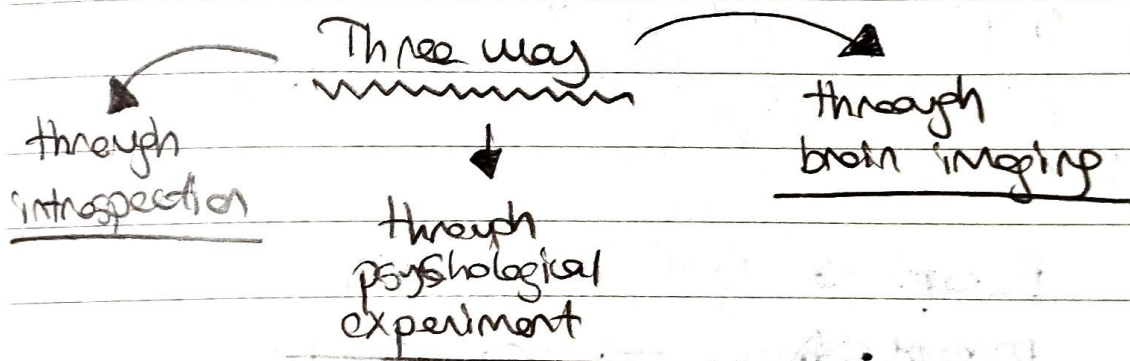 Three way
through
introspection
through
psyshological
experiment
through
brain imaging